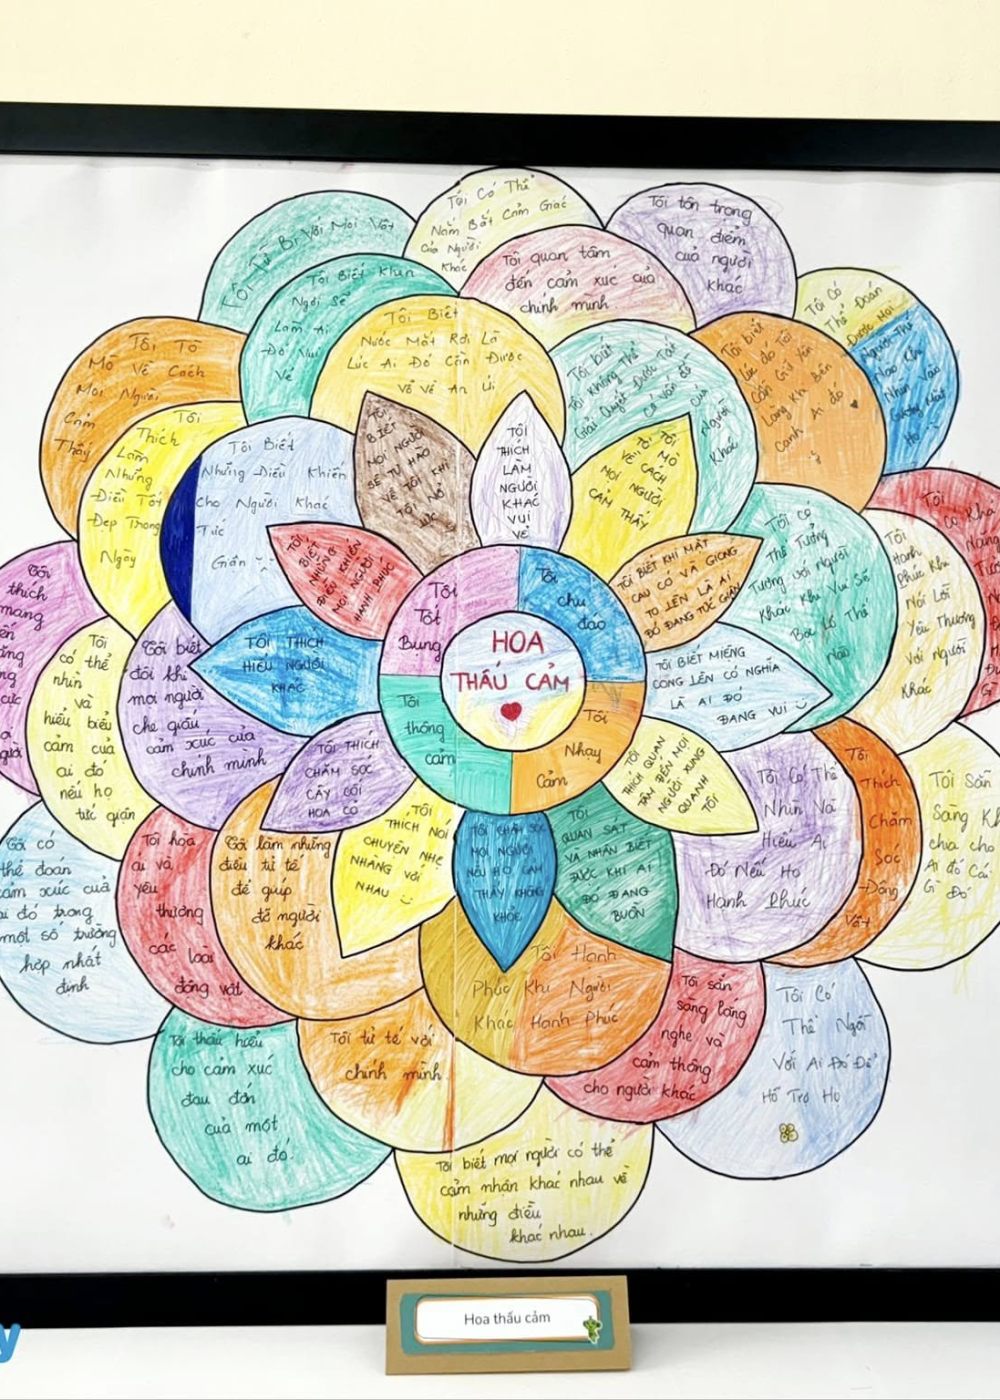 Tôi Từ Bi Với Mọi Vật
Tôi Có Thể
Nắm Bắt Cảm Giác
Của Người
Khác
Tôi tôn trọng
quan điểm
của người
khác
Tôi Biết Khun
Ngồi Sẽ
Làm Ai
Đó Vui
Vẻ
Tôi quan tâm
đến cảm xúc của
chính mình
Tôi Có
Thể Đoán
Được Mọi
Người Thế
Nào Khi
Nhìn Vào
Gương Mặt
Họ
Tôi Tò
Mò Về Cách
Mọi Người
Cảm
Thấy
Tôi Biết
Nước Mắt Rơi Là
Lúc Ai Đó Cần Được
Vỗ Về An Ủi
Tôi biết
Tôi Không Thể
Giải Quyết Được Tất
Cả Vấn đề
Của
Người
Khác
Tôi biết
lúc do Tôi
Cần Giữ Yên
Lặng Khi Bên
Cạnh Ai đó
Tôi
Thích
Làm
Những
Điều Tốt
Đẹp Trong
Ngày
Tôi Biết
Những Điều Khiến
Cho Người Khác
Tức
Giận
TÔI
BIẾT
MỌI NGƯỜI
SẼ TỰ HÀO
VỀ TÔI KHI
TÔI NỖ
LỰC
TÔI
THÍCH
LÀM
NGƯỜI
KHÁC
VUI
VẺ
TÔI TÒ MÒ
VỀ CÁCH
MỌI NGƯỜI
CẢM THẤY
Tôi có
Thể Tưởng
Tượng Với Người
Khác Khi Vui Sẽ
Ra Thế
Nào
Tôi
Có Khả
Năng
Tôi
Hạnh
Phúc Khi
Nói Lời
Yêu Thương
Với Người
Khác
TÔI
BIẾT
NHỮNG
ĐIỀU KHIẾN
MỌI NGƯỜI
HẠNH PHÚC
TÔI BIẾT KHI MẶT
CAU CÓ VÀ GIỌNG
TO LÊN LÀ AI
ĐÓ ĐANG TỨC GIẬN
Tôi
thích
mang
Tôi
có thể
nhìn
và
hiểu biểu
cảm của
ai đó
nếu họ
tức giận
Tôi biết
đôi khi
mọi người
che giấu
cảm xúc của
chính mình
TÔI THÍCH
HIỂU NGƯỜI
KHÁC
Tôi
Tốt
Bụng
Tôi
chu
đáo
HOA
THẤU CẢM
Tôi
thông
cảm
Tôi
Nhạy
Cảm
TÔI BIẾT MIỆNG
CONG LÊN CÓ NGHĨA
LÀ AI ĐÓ
ĐANG VUI
TÔI THÍCH
CHĂM SÓC
CÂY CỐI
HOA CỎ
TÔI
THÍCH QUAN
TÂM ĐẾN MỌI
NGƯỜI XUNG
QUANH
TÔI
Tôi Có Thể
Nhìn Và
Hiểu Ai
Đó Nếu Họ
Hạnh Phúc
Tôi
Thích
Chăm
Sóc
Động
Vật
Tôi Sẵn
Sàng
chia cho
Ai đó Cái
Gì Đó
Tôi có
thể đoán
cảm xúc của
ai đó trong
một số trường
hợp nhất
định
Tôi hòa
ái và
yêu
thương
các loài
động vật
Tôi làm những
điều tử tế
để giúp
đỡ người
khác
TÔI
THÍCH NÓI
CHUYỆN NHẸ
NHÀNG VỚI
NHAU
TÔI CHĂM SÓC
MỌI NGƯỜI
NẾU HỌ CẢM
THẤY KHÔNG
KHỎE
TÔI
QUAN SÁT
VÀ NHẬN BIẾT
ĐƯỢC KHI AI
ĐÓ ĐANG
BUỒN
Tôi Hạnh
Phúc Khi Người
Khác Hạnh Phúc
Tôi sẵn
sàng lắng
nghe và
cảm thông
cho người khác
Tôi Có
Thể Ngồi
Với Ai Đó Để
Hỗ Trợ Họ
Tôi thấu hiểu
cho cảm xúc
đau đớn
của một
ai đó.
Tôi tử tế với
chính mình
Tôi biết mọi người có thể
cảm nhận khác nhau về
những điều
khác nhau.
Hoa thấu cảm
y